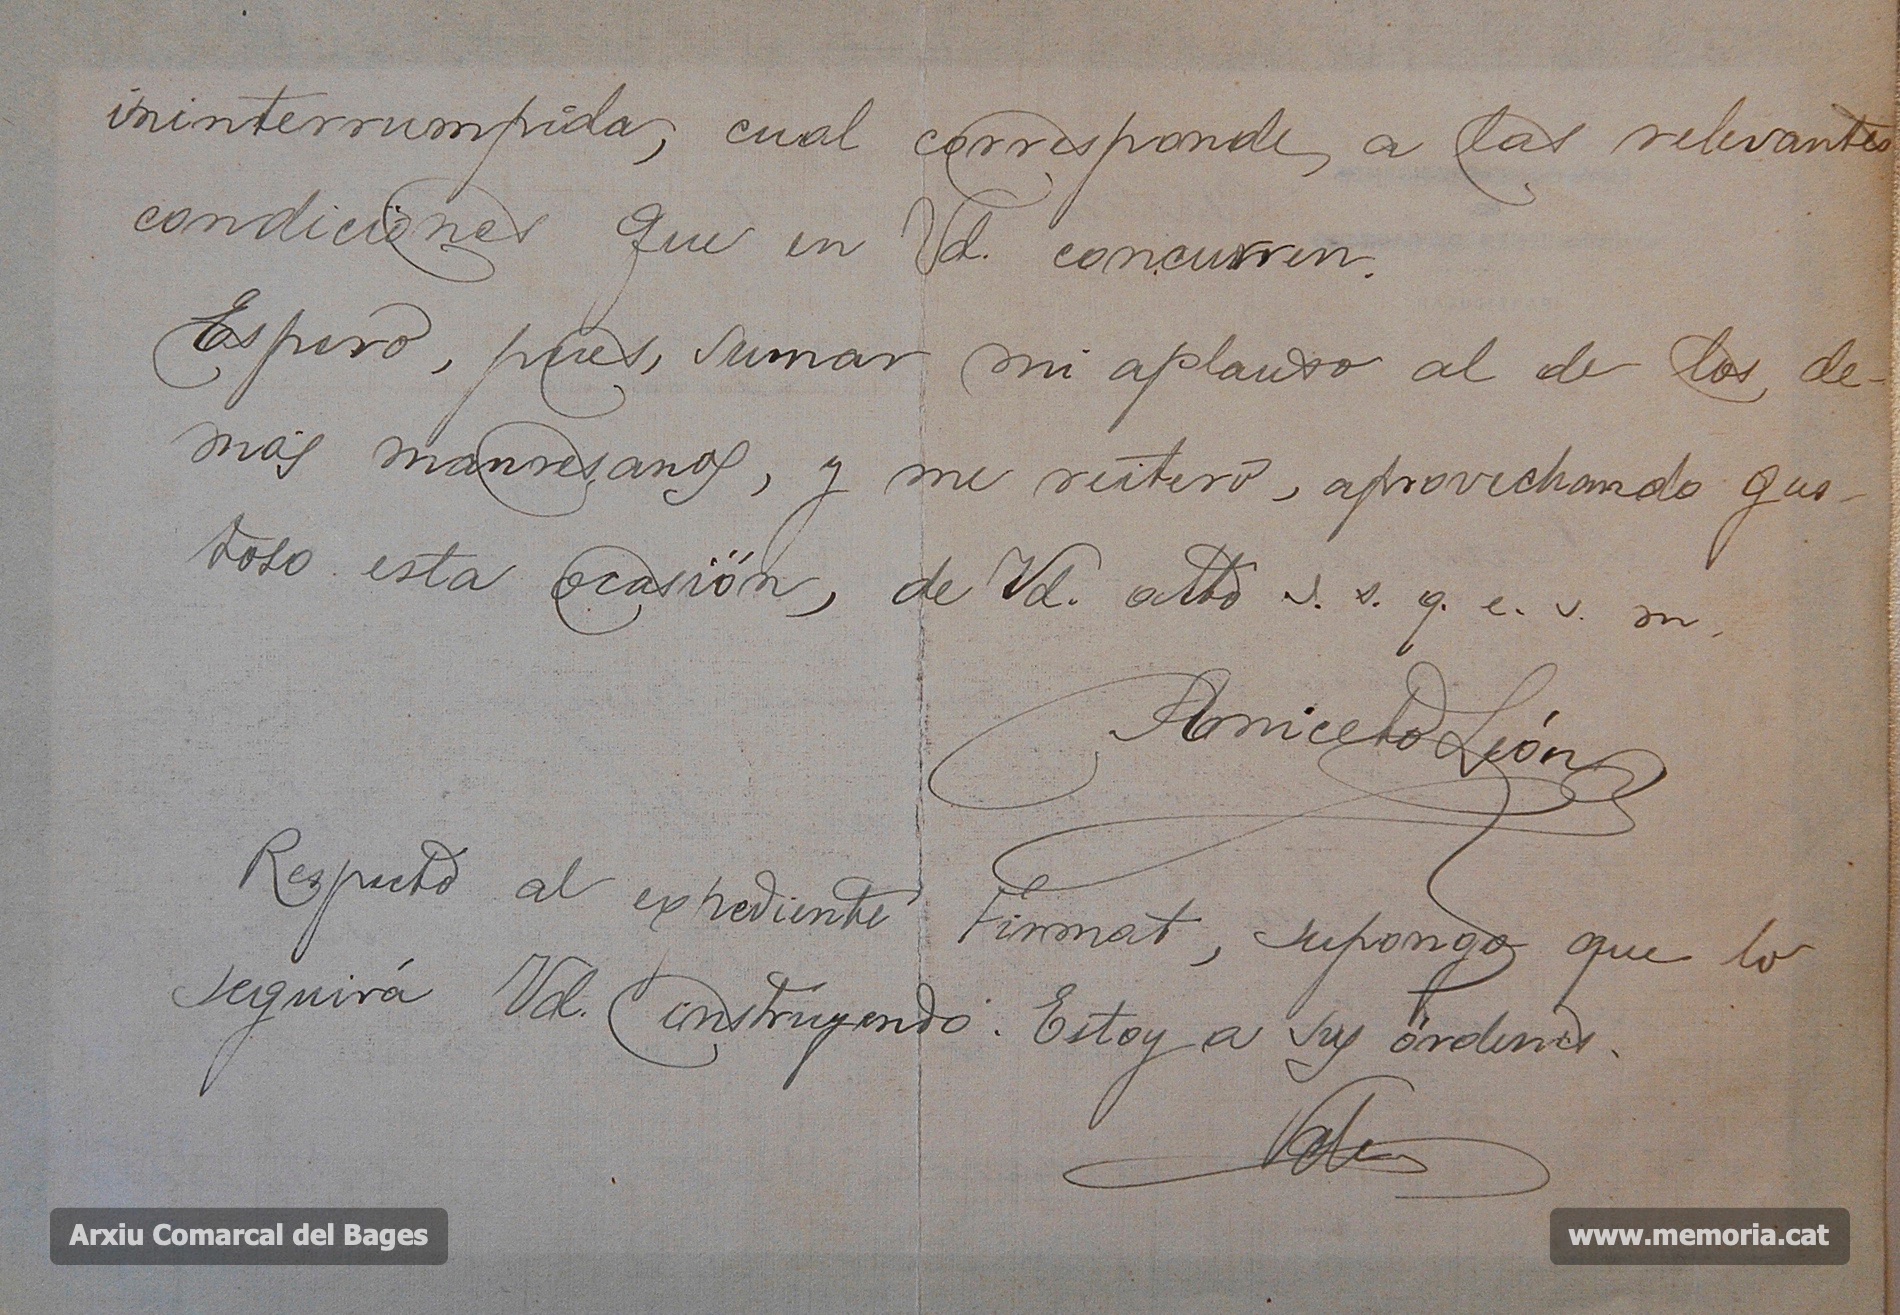 ininterrumpida, cual corresponde, a las relevantes
condiciones que en Vd. concurren.
Espero, pues, sumar mi aplauso al de los de-
más manresanos, y me reitero, aprovechando gus-
toso esta ocasión, de Vd. atto s. s. q. e. s. m.
Aniceto León
Respecto al expediente Firmat, supongo que lo
seguirá Vd. instruyendo. Estoy a sus órdenes.
Vale
Arxiu Comarcal del Bages
www.memoria.cat